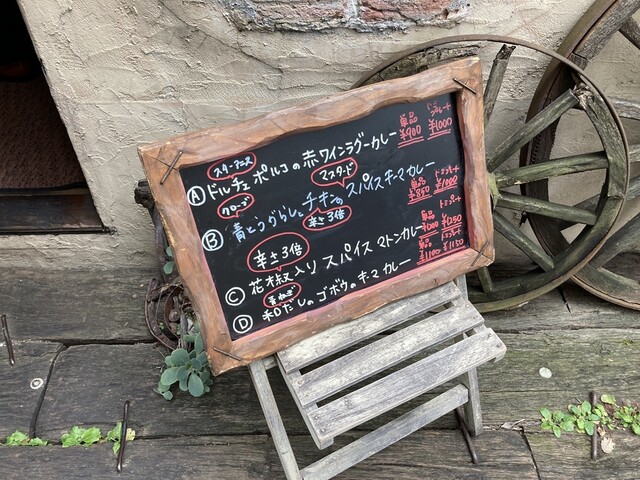 スターアニス
単品
¥900
¥1000
Ⓐ ドルチェポルコの赤ワインラグーカレー
クローブ
マスタード
単品
¥850
¥1000
Ⓑ 青とうがらしとチキンのスパイスキーマカレー
辛さ3倍
辛さ3倍
単品
¥1200
¥1250
Ⓒ 花椒入り スパイス マトンカレー
長ねぎ
単品
¥1100
¥1150
Ⓓ 和だしのゴボウのキーマカレー